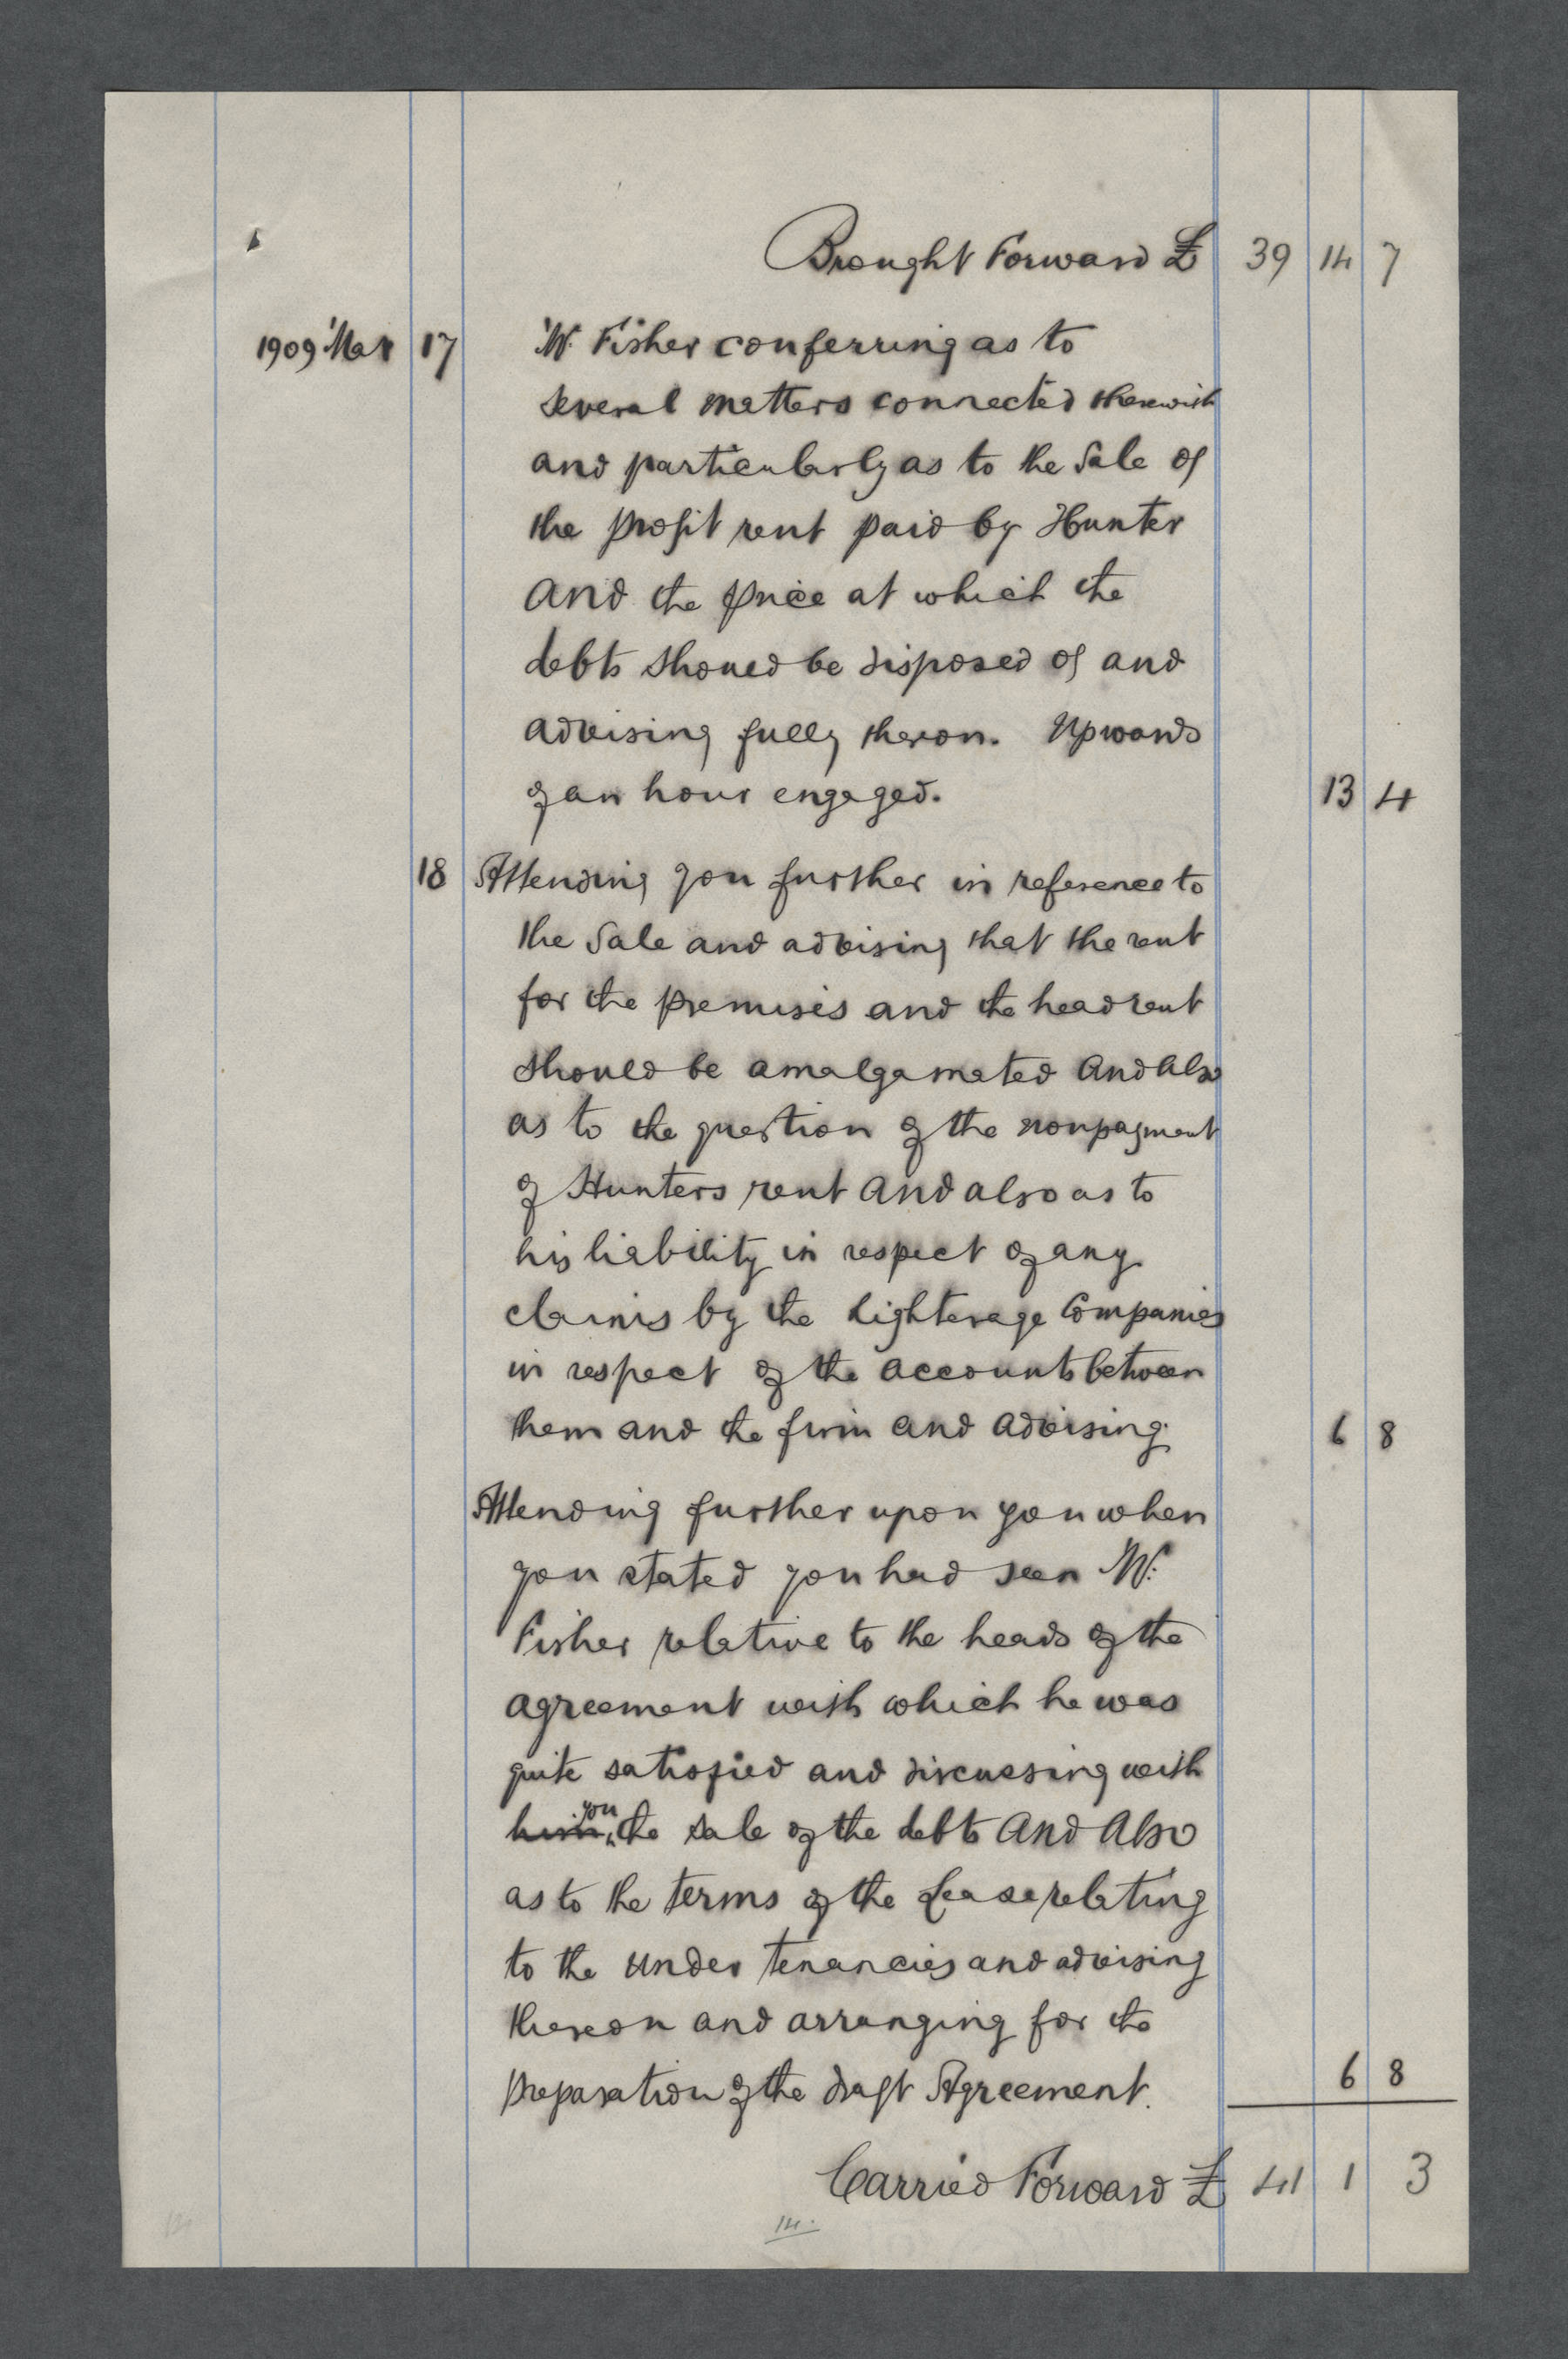 Brought Forward £ 39 14 7
1909 Mar 17 W. Fisher conferring as to
several matters connected therewith
and particularly as to the Sale of
the profit rent paid by Hunter
and the price at which the
debts should be disposed of and
advising fully theron. Upwards
of an hour engaged. 13 4
18 Attending you further in reference to
the Sale and advising that the rent
for the premises and the head rent
should be amalgamated and also
as to the question of the nonpayment
of Hunters rent and also as to
his liability in respect of any
claims by the Lighterage Companies
in respect of the accounts between
them and the firm and advising. 6 8
Attending further upon you when
you stated you had seen W.
Fisher relative to the heads of the
agreement with which he was
quite satisfied and discussing with
you
him the sale of the debts and also
as to the terms of the Lease relating
to the under tenancies and advising
thereon and arranging for the
preparation of the draft Agreement. 6 8
Carried Forward £ 41 1 3
14.